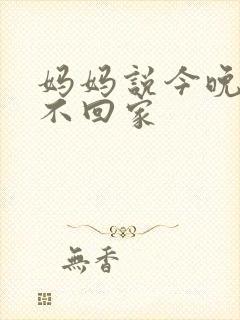 妈妈説今晚
不回家
無香